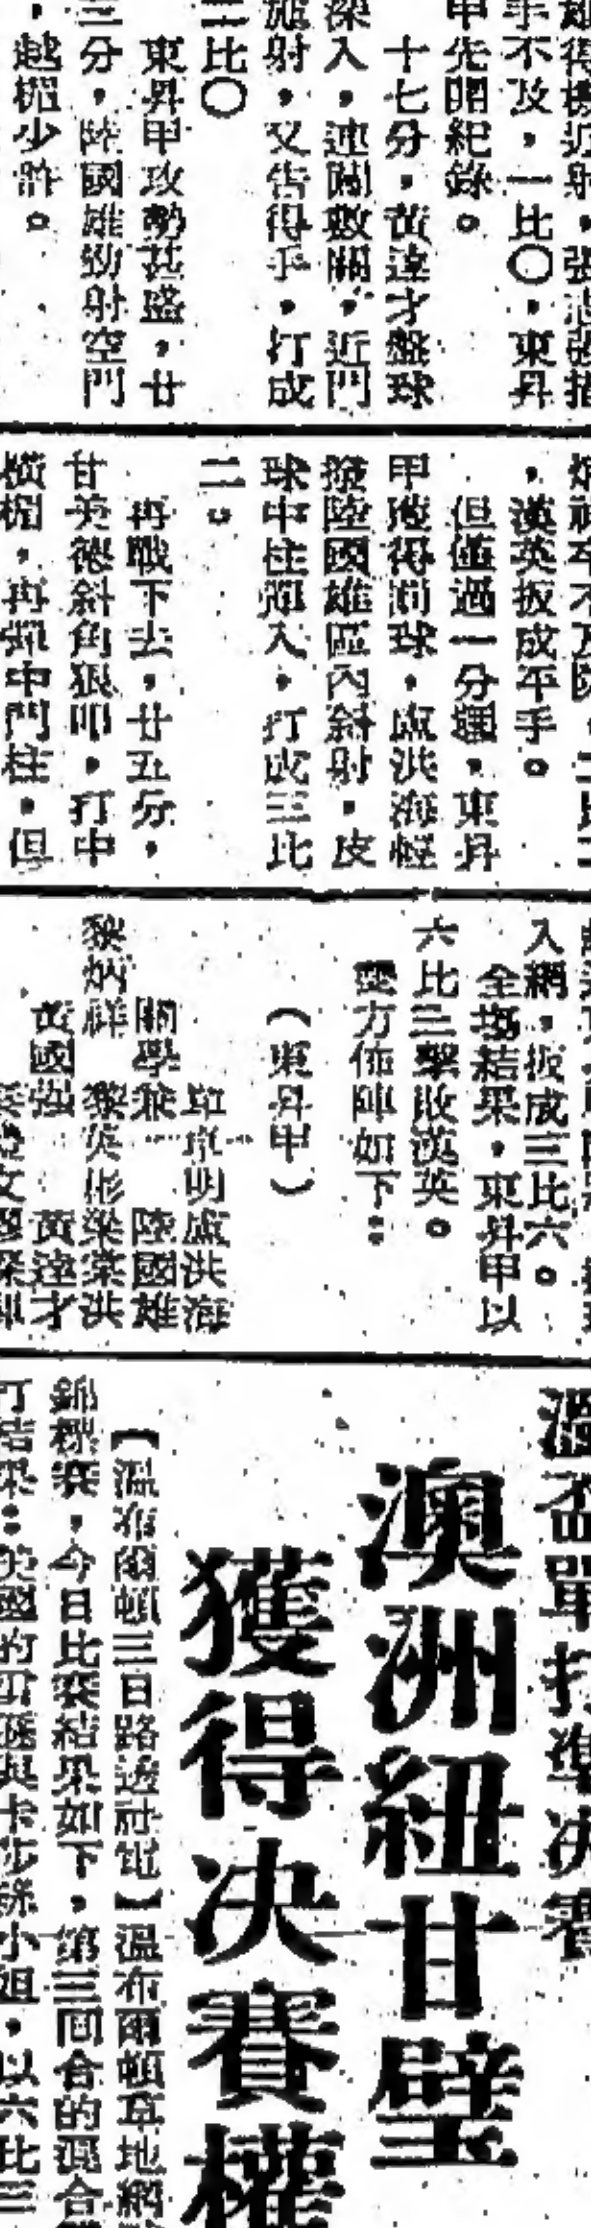 雄得機近射，張志強措
手不及，一比〇，東昇
甲先開紀錄。
十七分，黃達才盤球
深入，連闖數關，近門
施射，又告得手，打成
二比〇
東昇甲攻勢甚盛，廿
三分，陸國雄勁射空門
，越楣少許。
炳祥卒不及防。二比二
，漢英扳成平手。
但僅過一分鐘，東昇
甲獲得罰球，盧洪海輕
撥陸國雄區內斜射，皮
球中柱彈入，打成三比
二。
再戰下去，廿五分，
甘美德斜角狠叩，打中
橫楣，再彈中門柱，但
入網，扳成三比六。
全場結果，東昇甲以
六比三擊敗漢英。
雙方佈陣如下：
（東昇甲）
卓京明 盧洪海
關學兼 陸國雄
黎炳祥 黎英彬 梁棠洪
黃國強 黃達才
溫盃單打準決賽
澳洲紐甘璧
獲得決賽權
【溫布爾頓三日路透社電】溫布爾頓草地網
錦標賽，今日比賽結果如下，第三回合的混合
打結果：英國的 與卡 絲小姐，以六比三